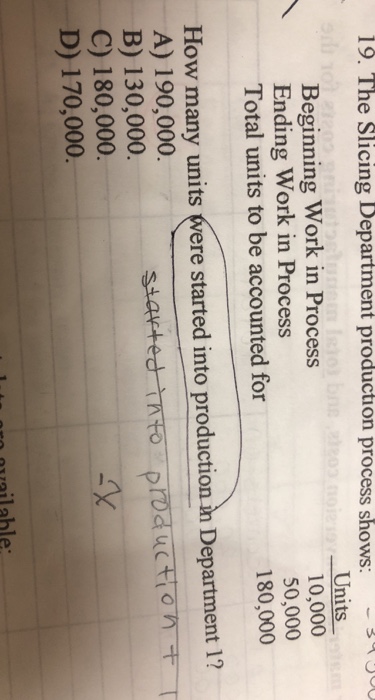 19. The Slicing Department production process shows:
Units
Beginning Work in Process 10,000
Ending Work in Process 50,000
Total units to be accounted for 180,000
How many units were started into production in Department 1?
A) 190,000.
B) 130,000.
C) 180,000.
D) 170,000.
started into production +
-x
available: